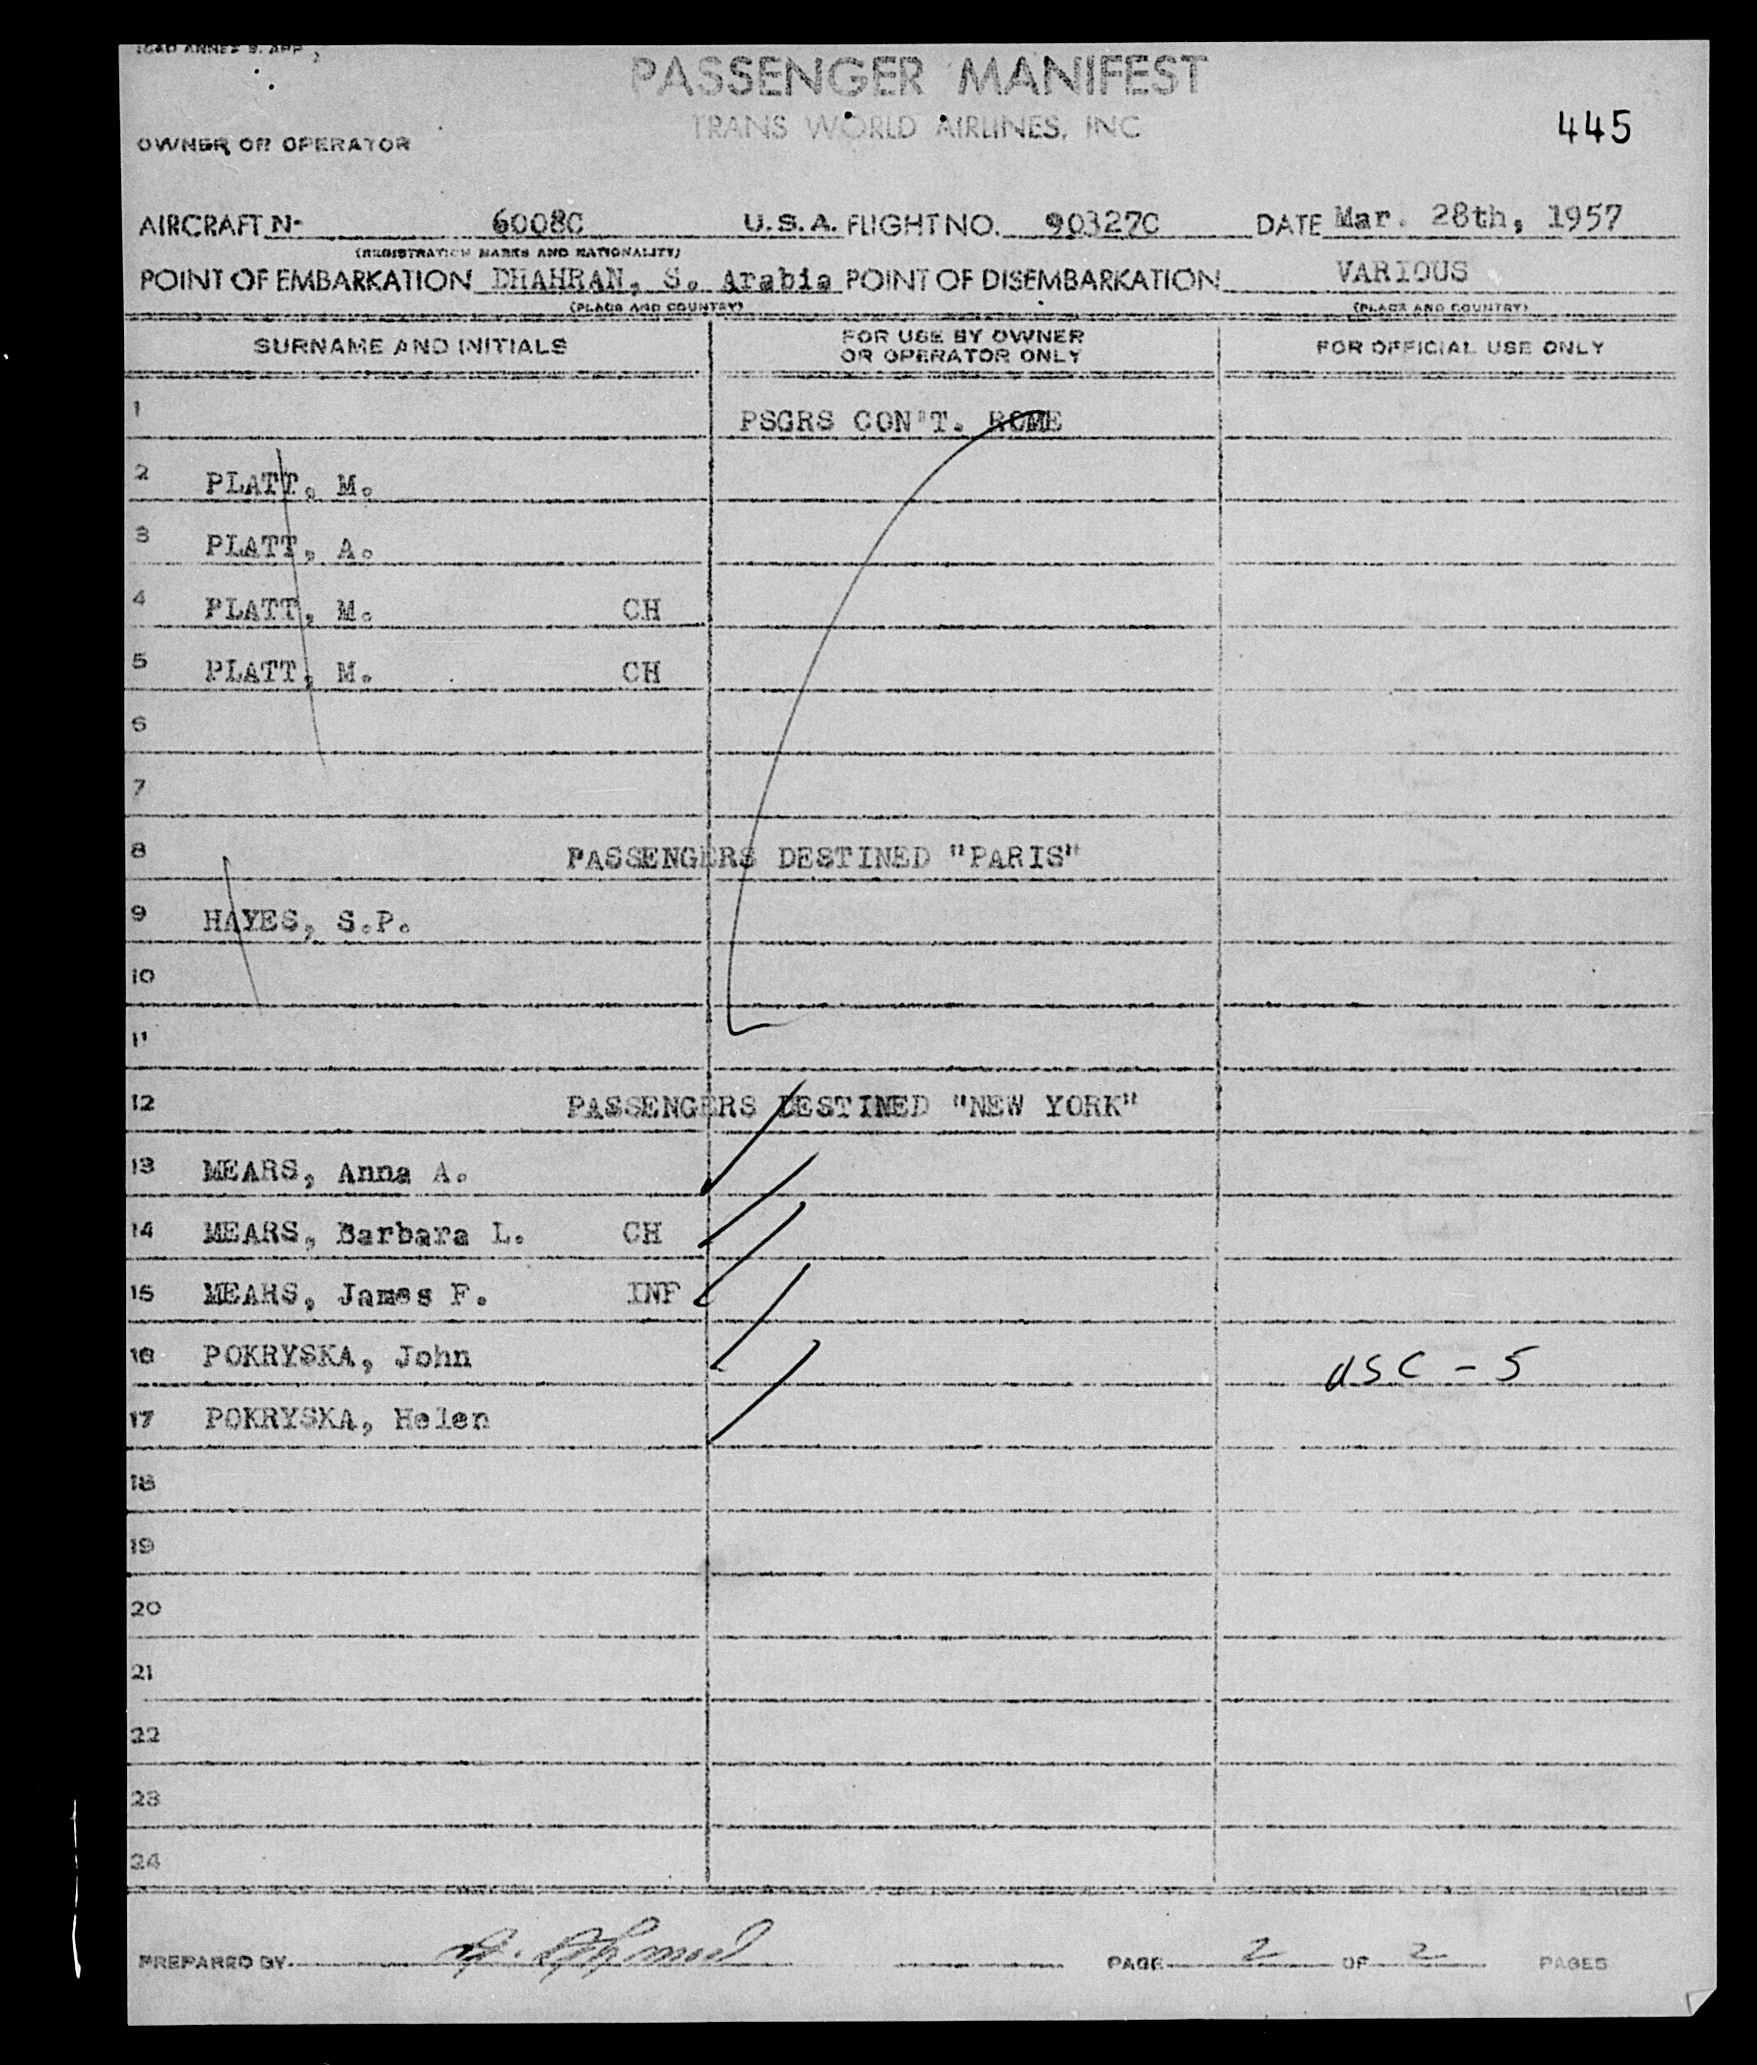 ICAO ANNEX 9. APP
PASSENGER MANIFEST
TRANS WORLD AIRLINES, INC
445
OWNER OR OPERATOR
AIRCRAFT N- 6008C U.S.A. FLIGHT NO. 90327C DATE Mar. 28th, 1957
(REGISTRATION MARKS AND NATIONALITY)
POINT OF EMBARKATION DHAHRAN, S. Arabia POINT OF DISEMBARKATION VARIOUS
(PLACE AND COUNTRY) (PLACE AND COUNTRY)
SURNAME AND INITIALS FOR USE BY OWNER OR OPERATOR ONLY FOR OFFICIAL USE ONLY
1 PSGRS CON'T. ROME
2 PLATT, M.
3 PLATT, A.
4 PLATT, M. CH
5 PLATT, M. CH
6
7
8 PASSENGERS DESTINED "PARIS"
9 HAYES, S.P.
10
11
12 PASSENGERS DESTINED "NEW YORK"
13 MEARS, Anna A.
14 MEARS, Barbara L. CH
15 MEARS, James F. INF
16 POKRYSKA, John USC - 5
17 POKRYSKA, Helen
18
19
20
21
22
23
24
PREPARED BY PAGE 2 OF 2 PAGES